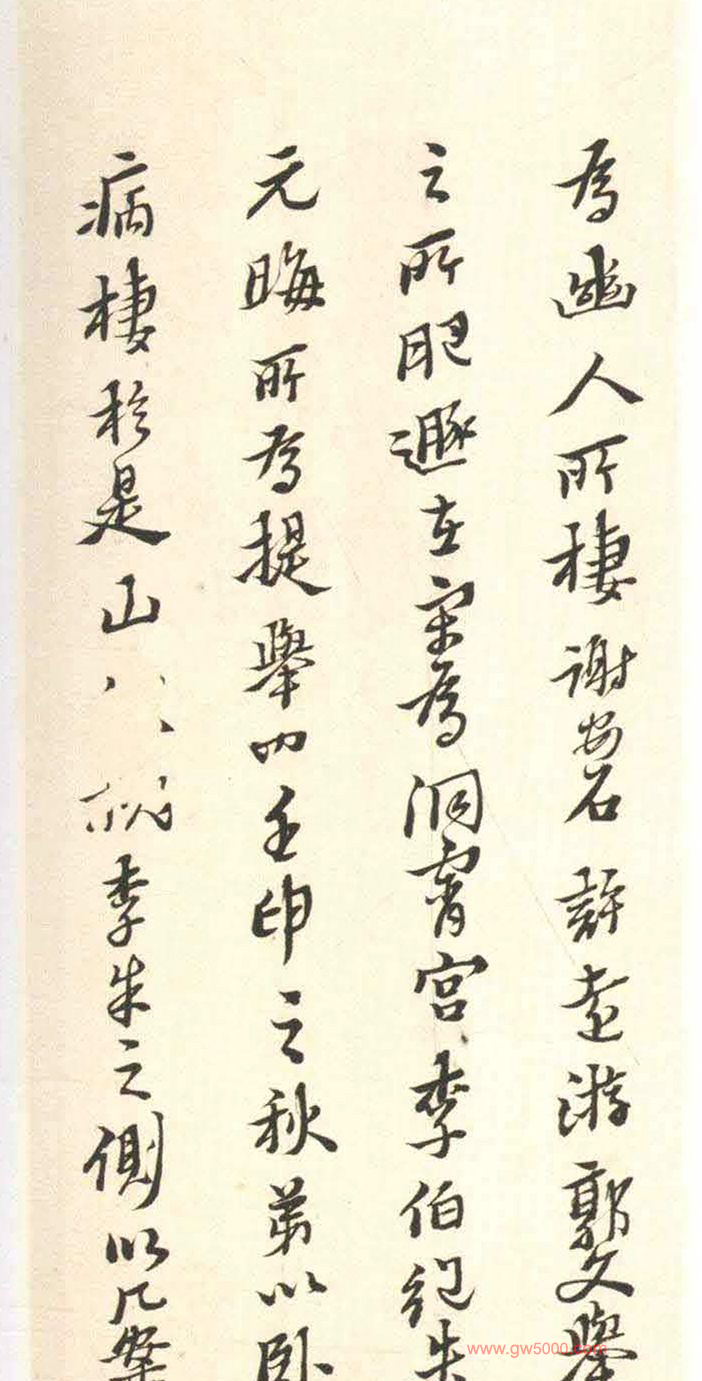 為幽人所棲謝安石許遠游郭文舉
之所肥遯在宋為洞霄宮李伯紀朱
元晦所為提舉也壬申之秋弟以卧
病棲於是山八八 李朱之側以几案
www.gw5000.com